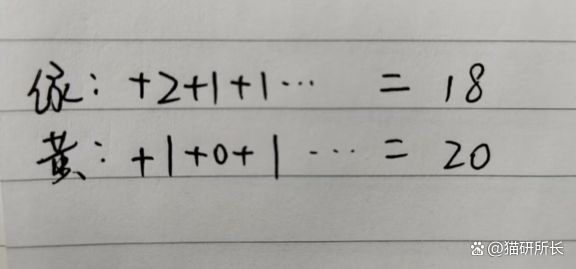 绿：+2+1+1… = 18
黄：+1+0+1… = 20
猫研所长